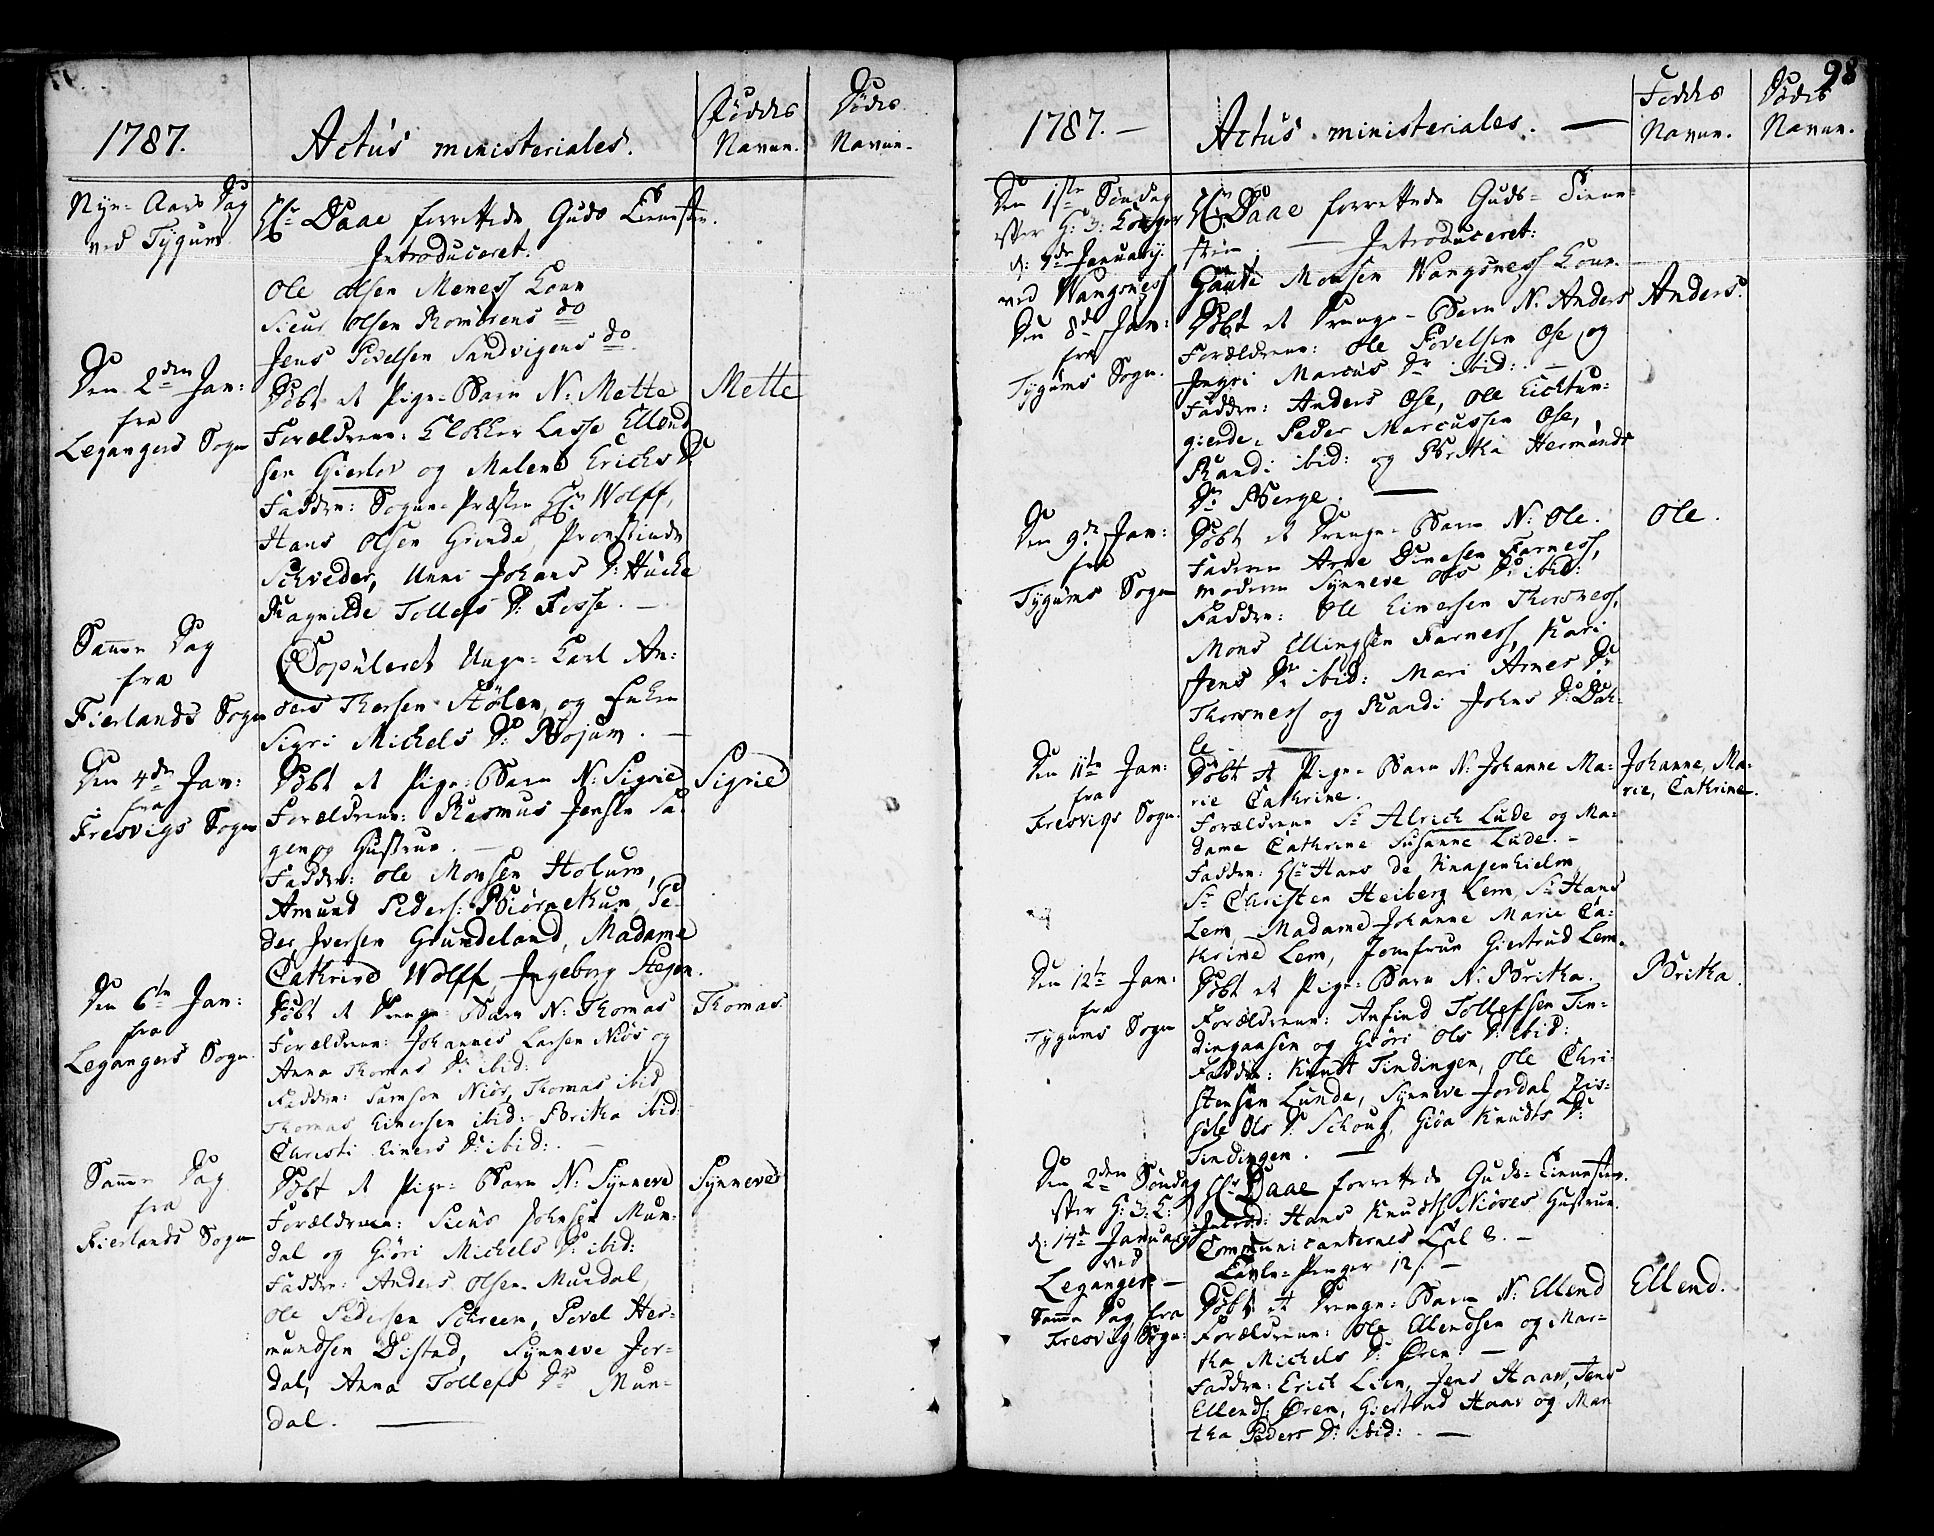 1787.
Actus ministeriales.
Føddes Navne.
Dødes Navne.
Nye-Aars Dag
ved Tygum
Hr Daae forrettede Guds Tienesten.
Introduceret.
Ole Olsen Meness Kone
Siur Olsen Romørens do
Jens Povelsen Sandvigens do
Den 2den Jan:
fra
Legangers Sogn
Døbt et Pige-Barn N: Mette
Mette
Forældrene: Klokker Lasse Ellend
sen Gierlov og Malene Erichs Dr
Faddre: Sogne-Præsten Hr Wolff,
Hans Olsen Grinde, Provstinde
Schveder, Unni Johans Dr Hucke
Ragnilde Tollefs Dr Fosse. —
Samme Dag
fra
Fierlands Sogn
Copuleret Unge-Karl An-
ders Thersen Stølen, og Enken
Sigri Michels Dr Bojum. —
Den 4de Jan:
fra
Fresvigs Sogn
Døbt et Pige-Barn N: Sigrie
Sigrie
Forældrene: Rasmus Jensen
gen og Gustrue. —
Faddre: Ole Monsen Holum,
Amund Peders: Biørnetun, Pe-
der Iversen Grundeland, Madame
Cathrine Wolff, Ingeborg Stegen.
Den 6te Jan:
fra
Legangers Sogn.
Døbt et Drenge-Barn N: Thomas
Thomas
Forældrene: Johannes Larsen Niøs og
Anna Thomas Dr ibid:
Faddre: Samson Niøs, Thomas ibid
Thomas Einersen ibid: Britha ibid:
Christi Einers Dr ibid: —
Samme Dag
fra
Fierlands Sogn
Døbt et Pige-Barn N: Synneve
Synneve
Forældrene: Siurs Johnsen Mun-
dal og Giøri Michels Dr ibid:
Faddre: Anders Olsen Mundal,
Ole Pedersen Schreen, Povel Her-
mundsen Distad, Synneve Jor-
dal, Anna Tollefs Dr Mun-
dal. —
98
1787. —
Actus ministeriales. —
Føddes Navne.
Dødes Navne.
Den 1ste Søndag
efter H: 3: Konger
d: 7de January
ved Vangsness
Hr Daae forrettede Guds-Tiene-
sten — Introduceret:
Gaute Monsen Vangsness Kone.
Den 8de Jan:
fra
Tygums Sogn.
Døbt et Drenge-Barn N: Anders
Anders.
Forældrene: Ole Povelsen Ose og
Ingri Marcus Dr ibid: —
Faddre: Anders Ose, Ole Eichtun-
gierde, Peder Marcussen Ose,
Randi ibid: og Britha Hermunds
Dr Berge. —
Den 9de Jan:
fra
Tygums Sogn
Døbt et Drenge-Barn N: Ole.
Ole.
Faderen Arne Dinesen Farness,
moderen Synneve Ols Dr ibid:
Faddre: Ole Einersen Thorsness,
Mons Ellingsen Farness, Kari
Jens Dr ibid: Mari Arnes Dr
Thorsness og Randi Johns Dr Dah-
le —
Den 11te Jan:
fra
Fresvigs Sogn.
Døbt et Pige-Barn N: Johanne Ma-
rie Cathrine.
Johanne, Ma-
rie, Cathrine.
Forældrene Sr Alrich Lude og Ma-
dame Cathrine Susanne Lude. —
Faddre: Hr Hans de Knagenhielm,
Sr Christen Heiberg Lem, Sr Hans
Lem, Madame Johanne Marie Ca-
thrine Lem, Jomfrue Giertrud Lem.
Den 12te Jan:
fra
Tygums Sogn
Døbt et Pige-Barn N: Britha.
Britha.
Forældrene: Anfind Tollefsen Tin-
dingaasen og Giøri Ols Dr ibid:
Faddre: Knut Tindingen, Ole Chri-
stensen Lunde, Synneve Jordal, Zis-
sile Ols Dr Schoug, Giøa Knudts Dr
Tindingen. —
Den 2den Søndag
efter H: 3: K:
d: 14de January
ved
Leganger —
Hr Daae forrettede Guds-Tienesten.
Introd: Hans Knudss Niøses Gustrue.
Communicanternes Tal 8. —
Tavle-Penger 12 s. —
Samme Dag, fra
Fresvig Sogn:
Døbt et Drenge-Barn N: Ellend
Ellend.
Forældrene: Ole Ellendsen og Mar-
tha Michels Dr Øren. —
Faddre: Erich Lien, Jens Haav, Jens
Ellends: Øren, Giertrud Haav og Mar
tha Peders Dr ibid: —